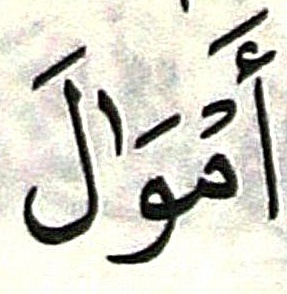 أَمْوَٰلَ